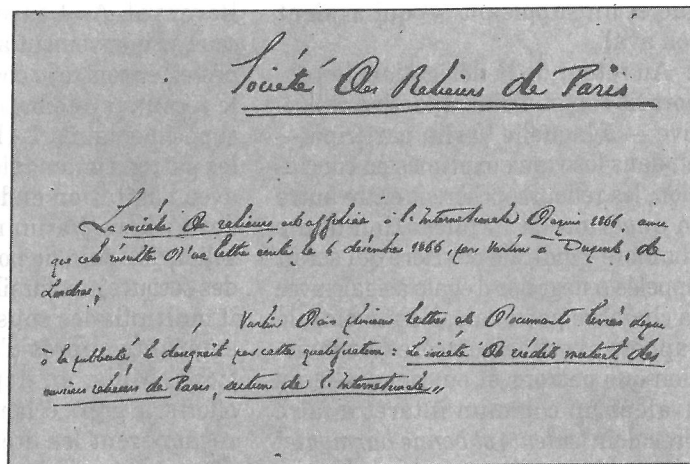 Société des Relieurs de Paris
La société de relieurs est affiliée à l'Internationale depuis 1866, ainsi
que cela résulte d'une lettre écrite le 6 décembre 1866, par Varlin à Dupont, de
Londres,
Varlin dans plusieurs lettres et documents livrés depuis
à la publicité, la désignait par cette qualification : La société de crédit mutuel des
ouvriers relieurs de Paris, section de l'Internationale,,